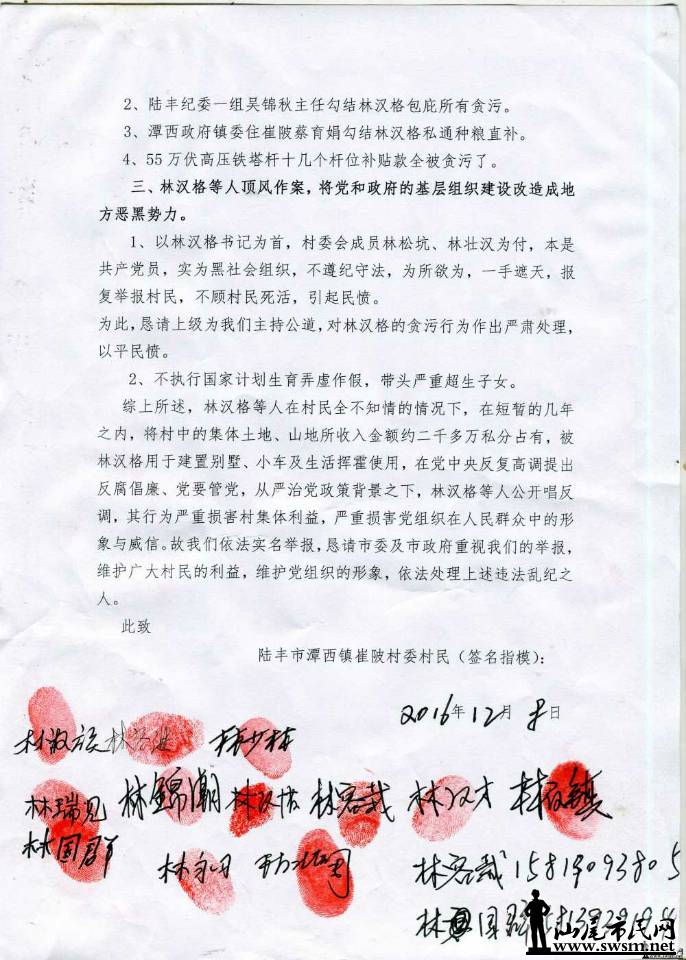 2、陆丰纪委一组吴锦秋主任勾结林汉格包庇所有贪污。
3、潭西政府镇委住崔陂蔡育娟勾结林汉格私通种粮直补。
4、55万伏高压铁塔杆十几个杆位补贴款全被贪污了。
三、林汉格等人顶风作案，将党和政府的基层组织建设改造成地
方恶黑势力。
1、以林汉格书记为首，村委会成员林松坑、林壮汉为付，本是
共产党员，实为黑社会组织，不遵纪守法，为所欲为，一手遮天，报
复举报村民，不顾村民死活，引起民愤。
为此，恳请上级为我们主持公道，对林汉格的贪污行为作出严肃处理，
以平民愤。
2、不执行国家计划生育弄虚作假，带头严重超生子女。
综上所述，林汉格等人在村民全不知情的情况下，在短暂的几年
之内，将村中的集体土地、山地所收入金额约二千多万私分占有，被
林汉格用于建置别墅、小车及生活挥霍使用，在党中央反复高调提出
反腐倡廉、党要管党，从严治党政策背景之下，林汉格等人公开唱反
调，其行为严重损害村集体利益，严重损害党组织在人民群众中的形
象与威信。故我们依法实名举报，恳请市委及市政府重视我们的举报，
维护广大村民的利益，维护党组织的形象，依法处理上述违法乱纪之
人。
此致
陆丰市潭西镇崔陂村委村民（签名指模）：
2016年12月8日
林瑞见 林锦潮 林汉才
林国群 林永
林 15819093805
林 国群
汕尾市民网
www.swsm.net